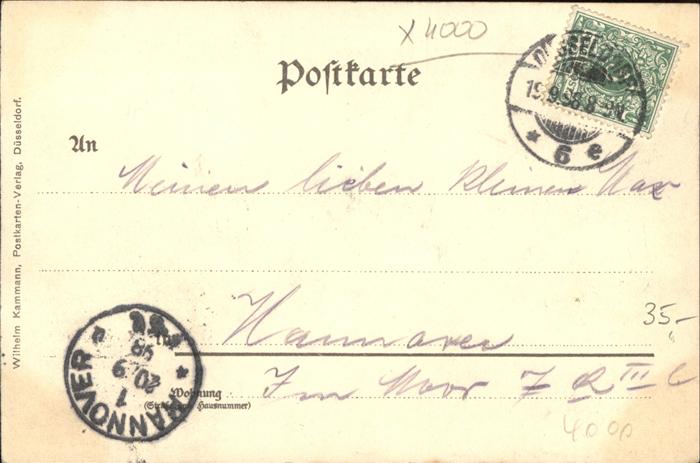 x 4000
Postkarte
DÜSSELDORF
19.9.98.8-9N.
* 6 e
An
Meinen lieben kleinen Max
Hannover
in
Wohnung
(Straße und Hausnummer)
Im Moor 7
III
35-
4000
HANNOVER
1
20 9
98
Wilhelm Kammann, Postkarten-Verlag, Düsseldorf.